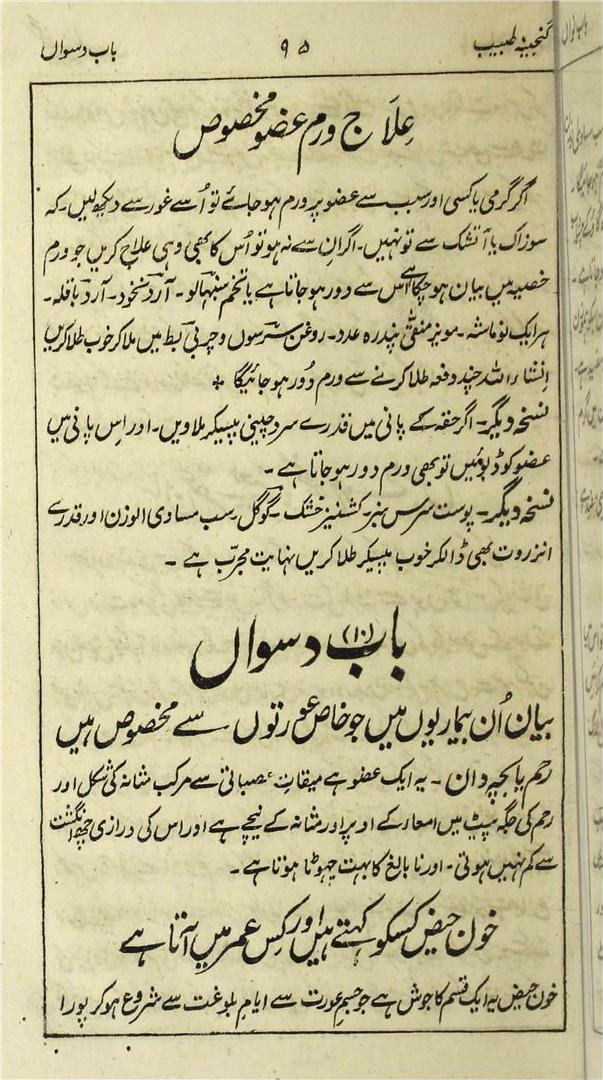 گنجینہ طبیب
۹۵
باب دسواں
عِلَاج ورم عضو مخصوص
اگر گرمی یا کسی اور سبب سے عضو پر ورم ہو جائے تو اُسے غور سے دیکھ لیں۔ کہ
سوزاک یا آتشک سے تو نہیں۔ اگر ان سے نہ ہو تو اُس کا بھی وہی علاج کریں جو ورم
خصیہ میں بیان ہو چکا ہے اس سے دور ہو جاتا ہے یا تخم سنبھالو۔ آرد نخود۔ آرد باقلہ۔
ہر ایک نو ماشہ۔ مویز منقیٰ پندرہ عدد۔ روغن سرسوں و چربی بط میں ملا کر خوب طلا کریں
انشاء اللہ چند دفعہ طلا کرنے سے ورم دُور ہو جائیگا +
نسخہ دیگر۔ اگر حقہ کے پانی میں قدرے سرد چینی پیسکر ملاویں۔ اور اس پانی میں
عضو کو ڈبوئیں تو بھی ورم دور ہو جاتا ہے۔
نسخہ دیگر۔ پوست سرس سبز۔ کشنیز خشک۔ گوگل۔ سب مساوی الوزن اور قدرے
انزروت بھی ڈالکر خوب پیسکر طلا کریں نہایت مجرّب ہے۔
باب (۱۰) دسواں
بیان اُن بیماریوں میں جو خاص عورتوں سے مخصوص ہیں
رحم یا بچہ دان۔ یہ ایک عضو ہے میقات عصباتی سے مرکب مثانہ کی شکل اور
رحم کی جگہ پیٹ میں امعاء کے اوپر اور مثانہ کے نیچے ہے اور اس کی درازی چھ انگشت
سے کم نہیں ہوتی۔ اور نا بالغ کا بہت چھوٹا ہوتا ہے۔
خون حیض کسکو کہتے ہیں اور کِس عمر میں آتا ہے
خون حیض یہ ایک قسم کا جوش ہے جو جسم عورت سے ایام بلوغت سے شروع ہو کر پورا